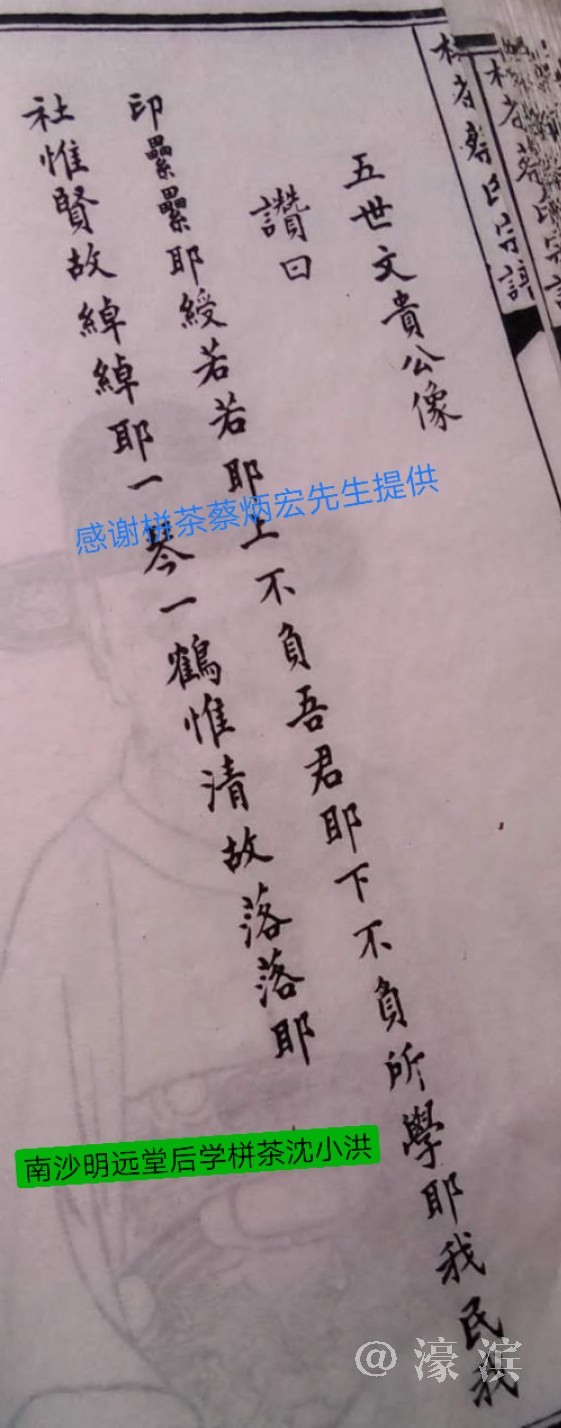 五世文貴公像
讚曰
印纍纍耶綬若若耶上不負吾君耶下不負所學耶我民我
社惟賢故綽綽耶一琴一鶴惟清故落落耶
感谢栟茶蔡炳宏先生提供
南沙明远堂后学栟茶沈小洪
@濠滨